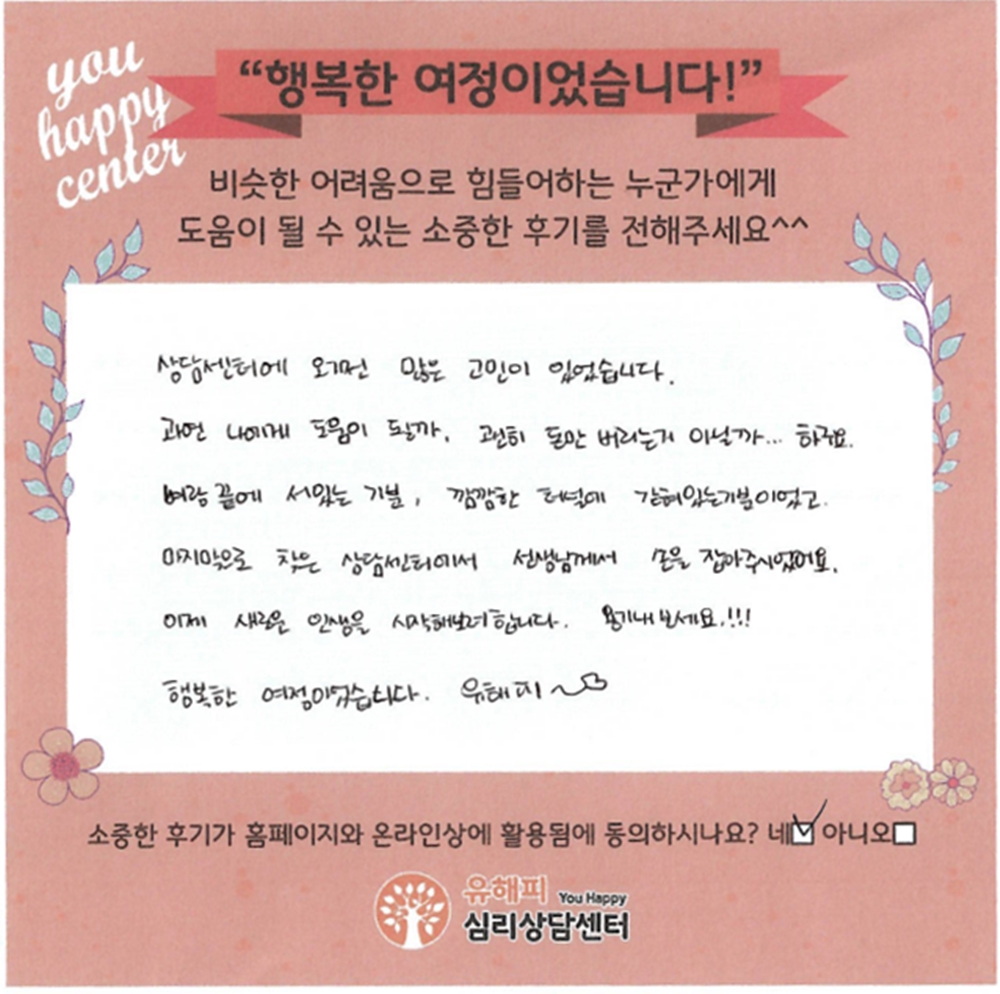 you
happy
center
“행복한 여정이었습니다!”
비슷한 어려움으로 힘들어하는 누군가에게
도움이 될 수 있는 소중한 후기를 전해주세요^^
상담센터에 오기전 많은 고민이 있었습니다.
과연 나에게 도움이 될까, 괜히 돈만 버리는거 아닐까... 하구요.
벼랑 끝에 서있는 기분, 깜깜한 터널에 갇혀있는기분이었고.
마지막으로 찾은 상담센터에서 선생님께서 손을 잡아주시었어요.
이제 새로운 인생을 시작해보려합니다. 용기내 보세요.!!!
행복한 여정이었습니다. 유해피~♡
소중한 후기가 홈페이지와 온라인상에 활용됨에 동의하시나요? 네☑ 아니오☐
유해피 You Happy
심리상담센터